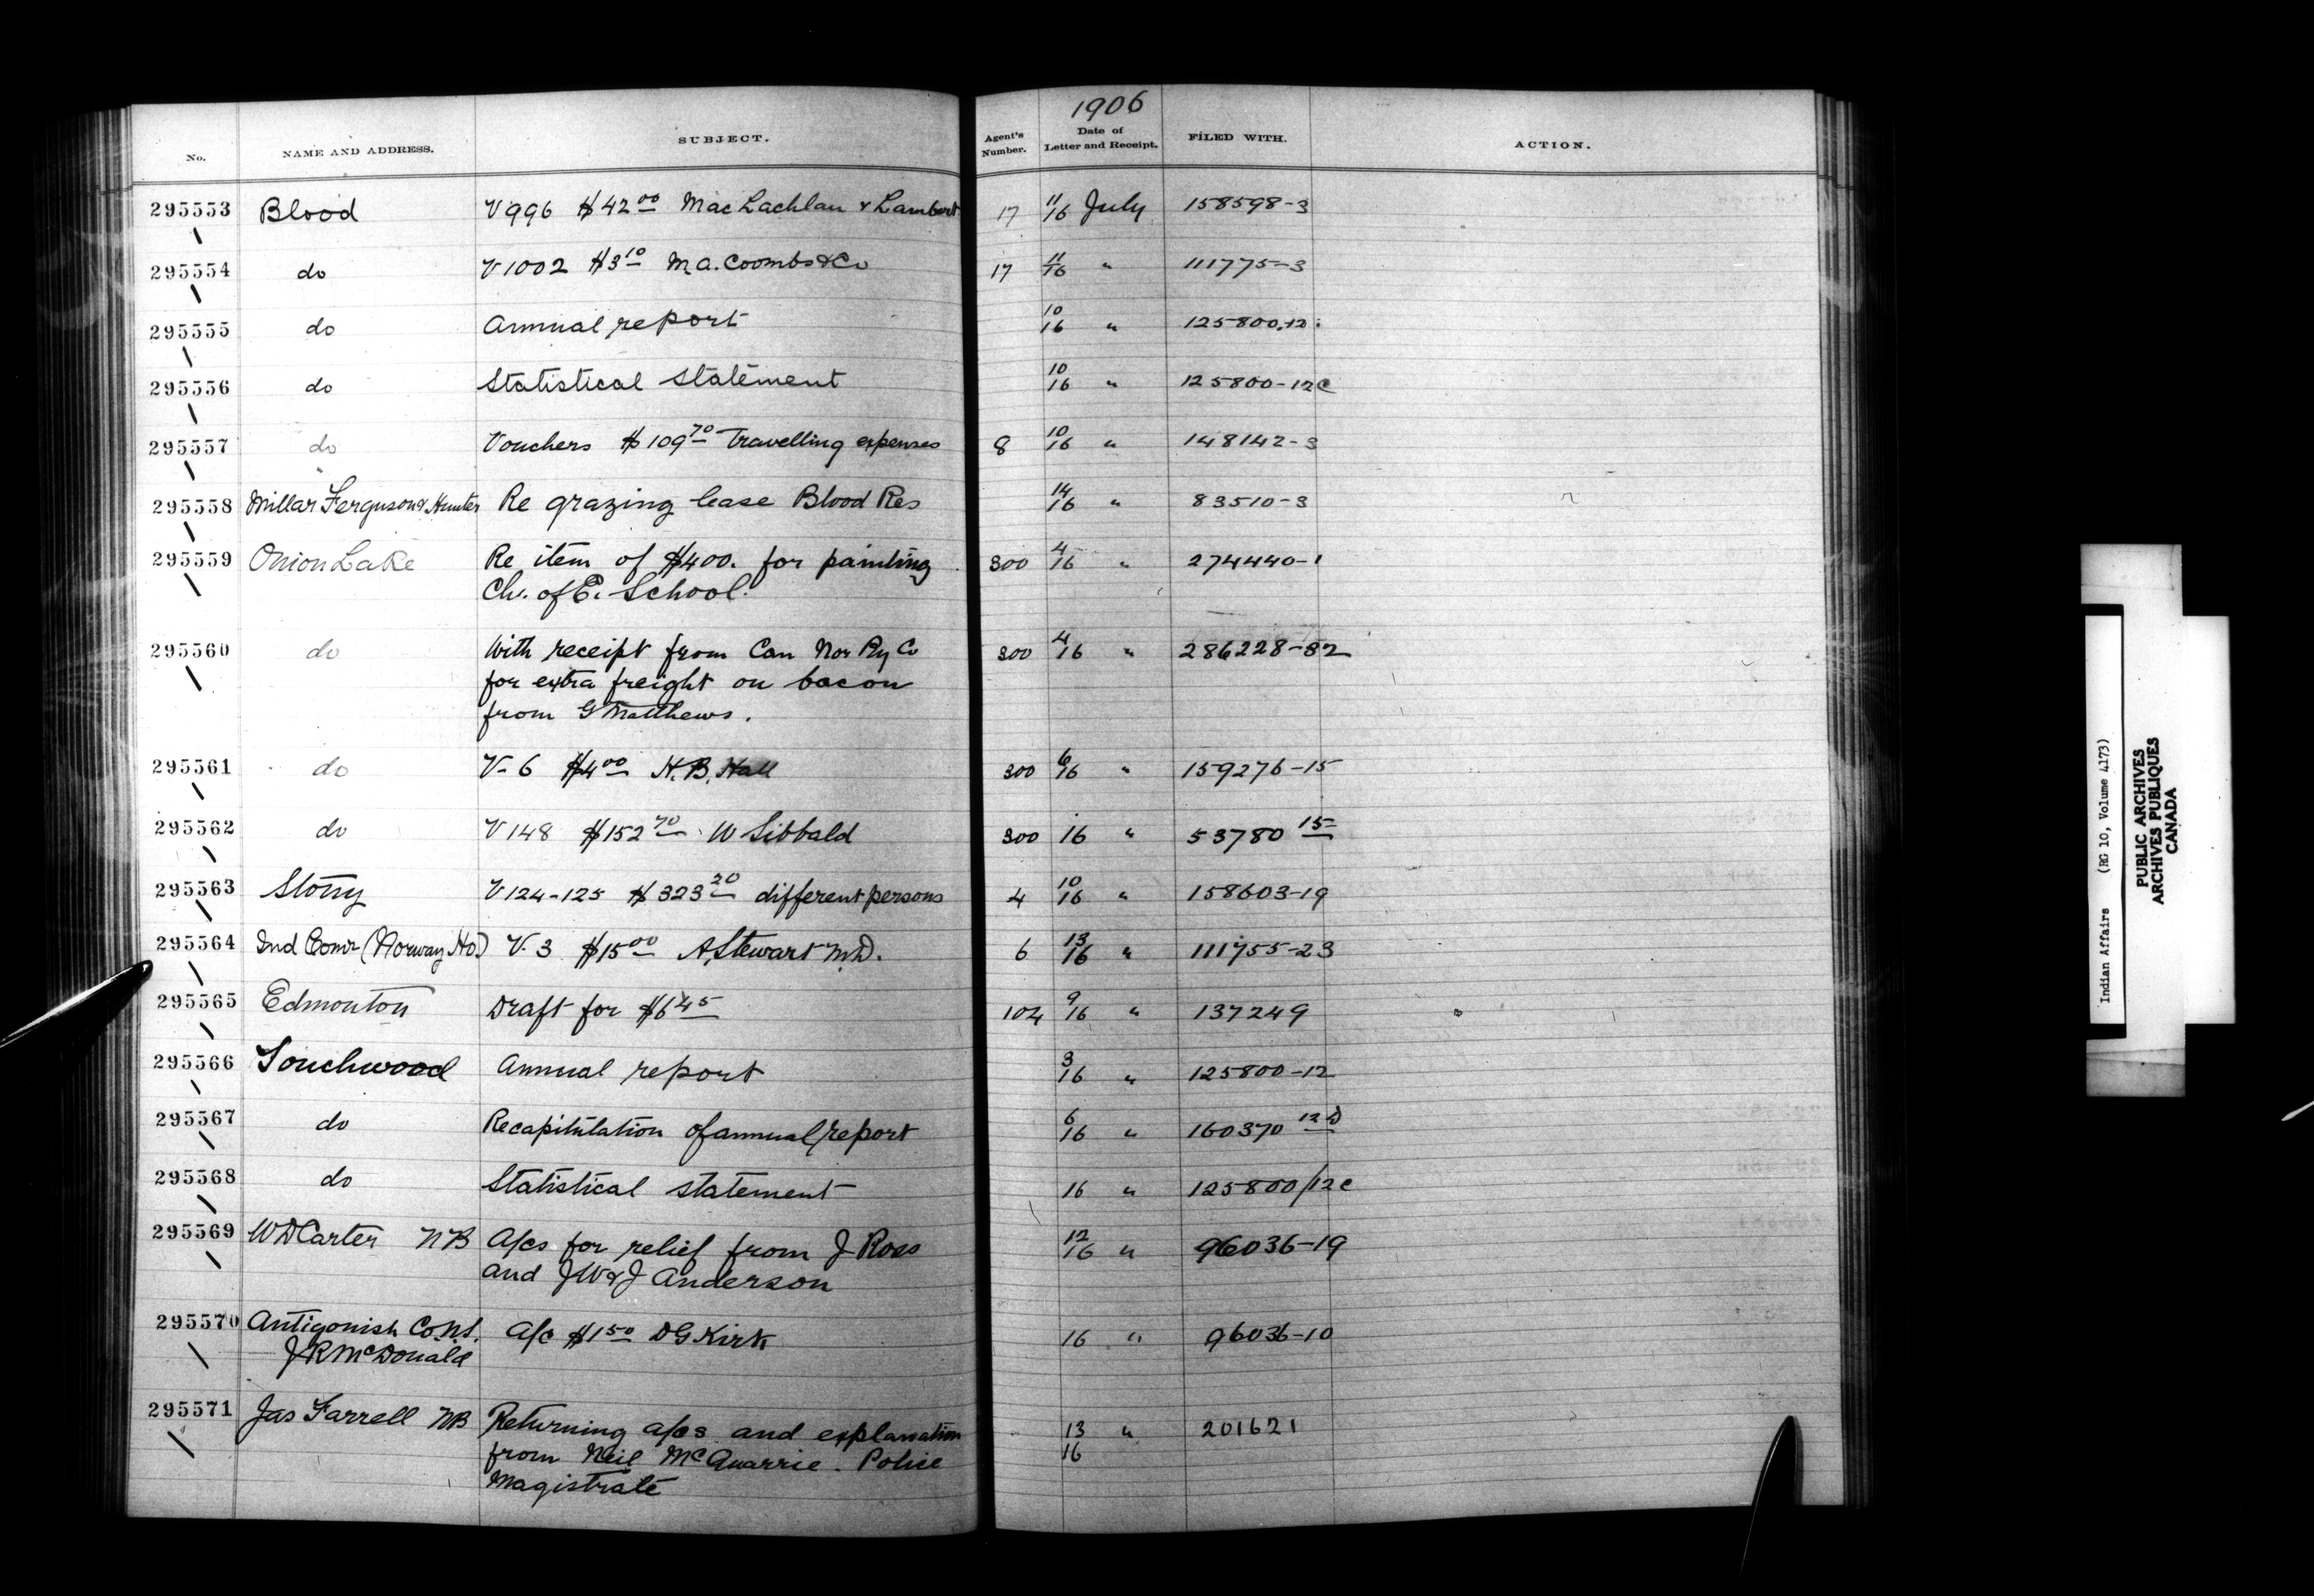 1906
No. NAME AND ADDRESS. SUBJECT. Agent's Number. Date of Letter and Receipt. FILED WITH. ACTION.
295553 Blood V 996 $42 00 MacLachlan & Lambert 17 11/16 July 158598-3
295554 do V 1002 $3 10 M.A. Coombs & Co 17 11/16 " 111775-3
295555 do Annual report 10/16 " 125800-12
295556 do Statistical Statement 10/16 " 125800-12C
295557 do Vouchers $109 70 Travelling expenses 8 10/16 " 148142-3
295558 Millar Ferguson & Hunter Re grazing lease Blood Res 14/16 " 83510-3
295559 Onion Lake Re item of $400. for painting 300 4/16 " 274440-1
Ch. of E. School.
295560 do With receipt from Can Nor Ry Co 300 4/16 " 286228-32
for extra freight on bacon
from G Matthews.
295561 do V- 6 $4 00 H.B. Hall 300 6/16 " 159276-15
295562 do V 148 $152 70 W Sibbald 300 16 " 53780 15
295563 Stony V 124-125 $323 20 different persons 4 10/16 " 158603-19
295564 Ind Comr (Norway Ho) V. 3 $15 00 A. Stewart M.D. 6 13/16 " 111755-23
295565 Edmonton Draft for $6 45 104 9/16 " 137249
295566 Touchwood Annual report 3/16 " 125800-12
295567 do Recapitulation of annual report 6/16 " 160370 12D
295568 do Statistical statement 16 " 125800/12C
295569 W D Carter NB A/cs for relief from J Ross 12/16 " 96036-19
and J W & J Anderson
295570 Antigonish Co. N.S. A/c $1 50 D G Kirk 16 " 96036-10
J R McDonald
295571 Jas Farrell NB Returning a/cs and explanation 13/16 " 201621
from Neil McQuarrie. Police
Magistrate
Indian Affairs (RG 10, Volume 4173)
PUBLIC ARCHIVES
ARCHIVES PUBLIQUES
CANADA